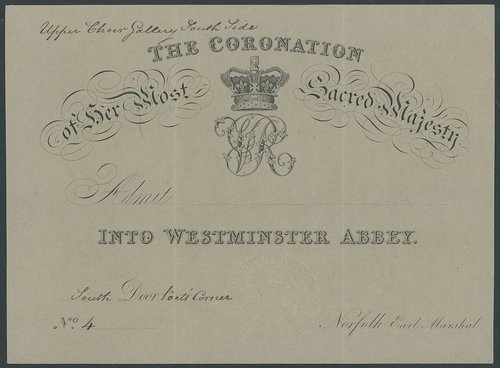 Upper Choir Gallery South Side
THE CORONATION
of Her Most Sacred Majesty
VR
Admit
INTO WESTMINSTER ABBEY.
South Door Poets Corner
No. 4
Norfolk Earl Marshal